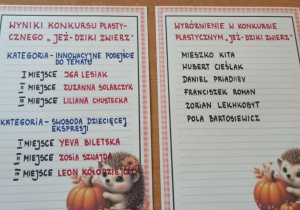 WYNIKI KONKURSU PLASTY-
CZNEGO „JEŻ-DZIKI ZWIERZ"
KATEGORIA - INNOWACYJNE PODEJŚCIE
DO TEMATU
I MIEJSCE IGA LESIAK
II MIEJSCE ZUZANNA SOLARCZYK
III MIEJSCE LILIANA CHUSTECKA
KATEGORIA - SWOBODA DZIECIĘCEJ
EKSPRESJI
I MIEJSCE YEVA BILETSKA
II MIEJSCE ZOSIA SZWAJDA
III MIEJSCE LEON KOŁODZIEJCZYK
WYRÓŻNIENIE W KONKURSIE
PLASTYCZNYM „JEŻ-DZIKI ZWIERZ"
MIESZKO KITA
HUBERT CIEŚLAK
DANIEL PRIADIIEV
FRANCISZEK ROMAN
ZORIAN LEKHKOBYT
POLA BARTOSIEWICZ